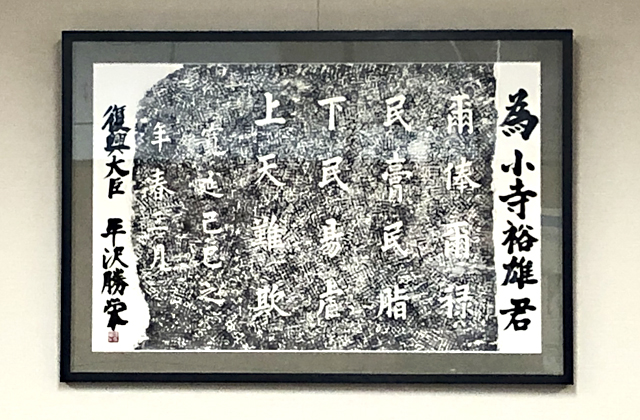 為小寺裕雄君
爾俸爾禄
民膏民脂
下民易虐
上天難欺
寛延己巳之
年春三月
復興大臣 平沢勝栄